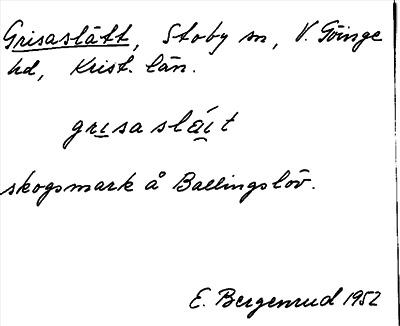 Grisaslätt, Stoby sn, V. Göinge
hd, Krist. län.
grɪsaslæ̀ít
skogsmark å Ballingslöv.
E. Bergenrud 1952